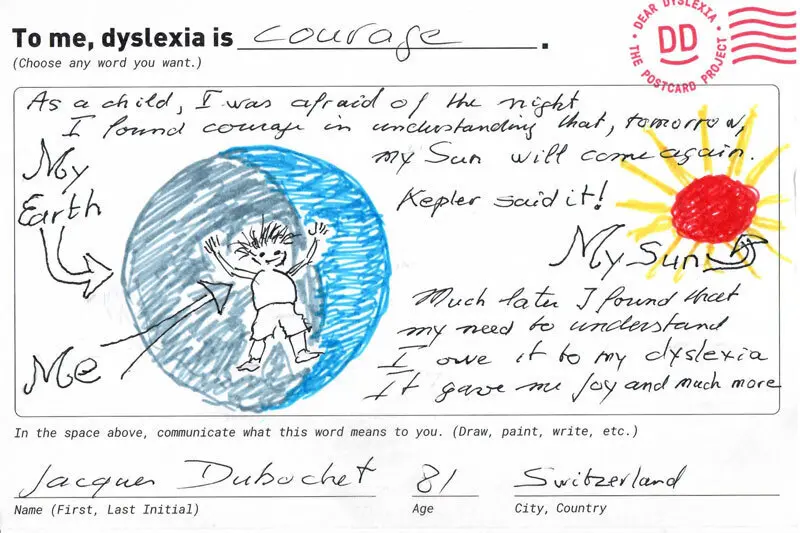 To me, dyslexia is courage.
(Choose any word you want.)
• DEAR DYSLEXIA • THE POSTCARD PROJECT
DD
As a child, I was afraid of the night
I found courage in understanding that, tomorrow,
my Sun will come again.
My
Earth
Kepler said it!
My Sun
Me
Much later I found that
my need to understand
I owe it to my dyslexia
It gave me joy and much more
In the space above, communicate what this word means to you. (Draw, paint, write, etc.)
Jacques Dubochet 81 Switzerland
Name (First, Last Initial) Age City, Country